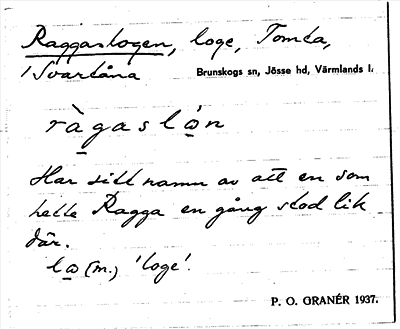 Raggaslogen, loge, Tomta,
i Svartåna Brunskogs sn, Jösse hd, Värmlands l.
ràgaslo̲n
Har sitt namn av att en som
hette Ragga en gång stod lik
där.
lo̲ (m.) 'loge'.
P. O. GRANÉR 1937.